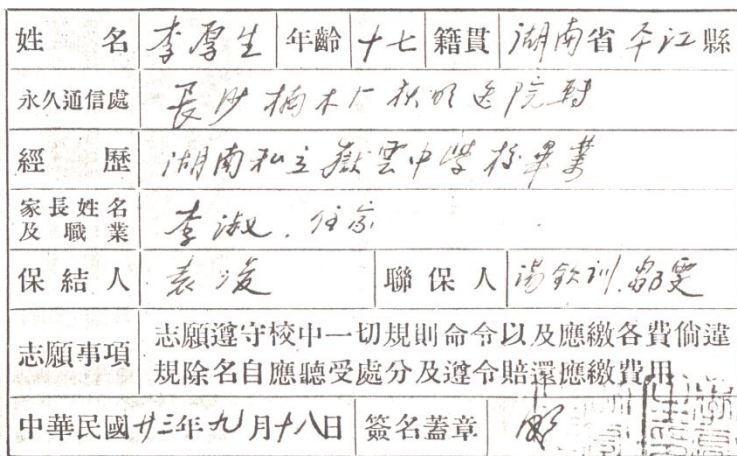 姓名 李厚生 年齡 十七 籍貫 湖南省平江縣
永久通信處 長沙楠木廳秋明医院轉
經歷 湖南私立嶽雲中學校畢業
家長姓名及職業 李淑 住家
保結人 袁浚 聯保人 湯欽訓
志願事項 志願遵守校中一切規則命令以及應繳各費倘違
規除名自應聽受處分及遵令賠還應繳費用
中華民國廿三年九月十八日 簽名蓋章